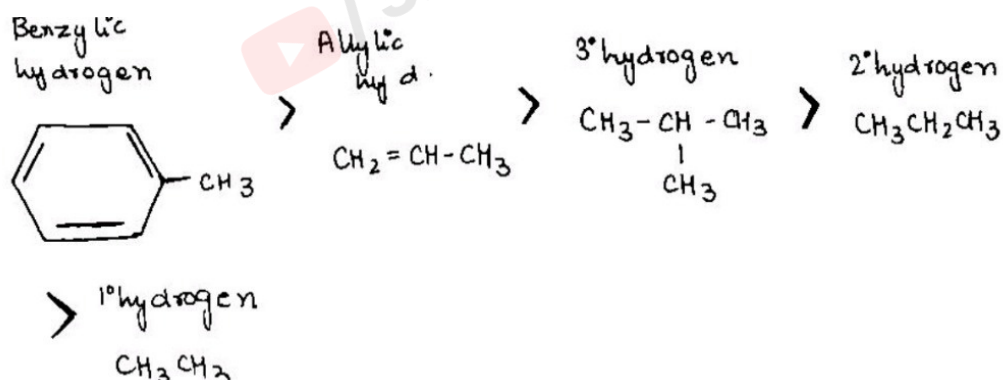 Benzylic
hydrogen
>
Allylic
hyd.
CH2 = CH-CH3
>
3°hydrogen
CH3-CH-CH3
CH3
>
2°hydrogen
CH3CH2CH3
CH3
>
1°hydrogen
CH3 CH3